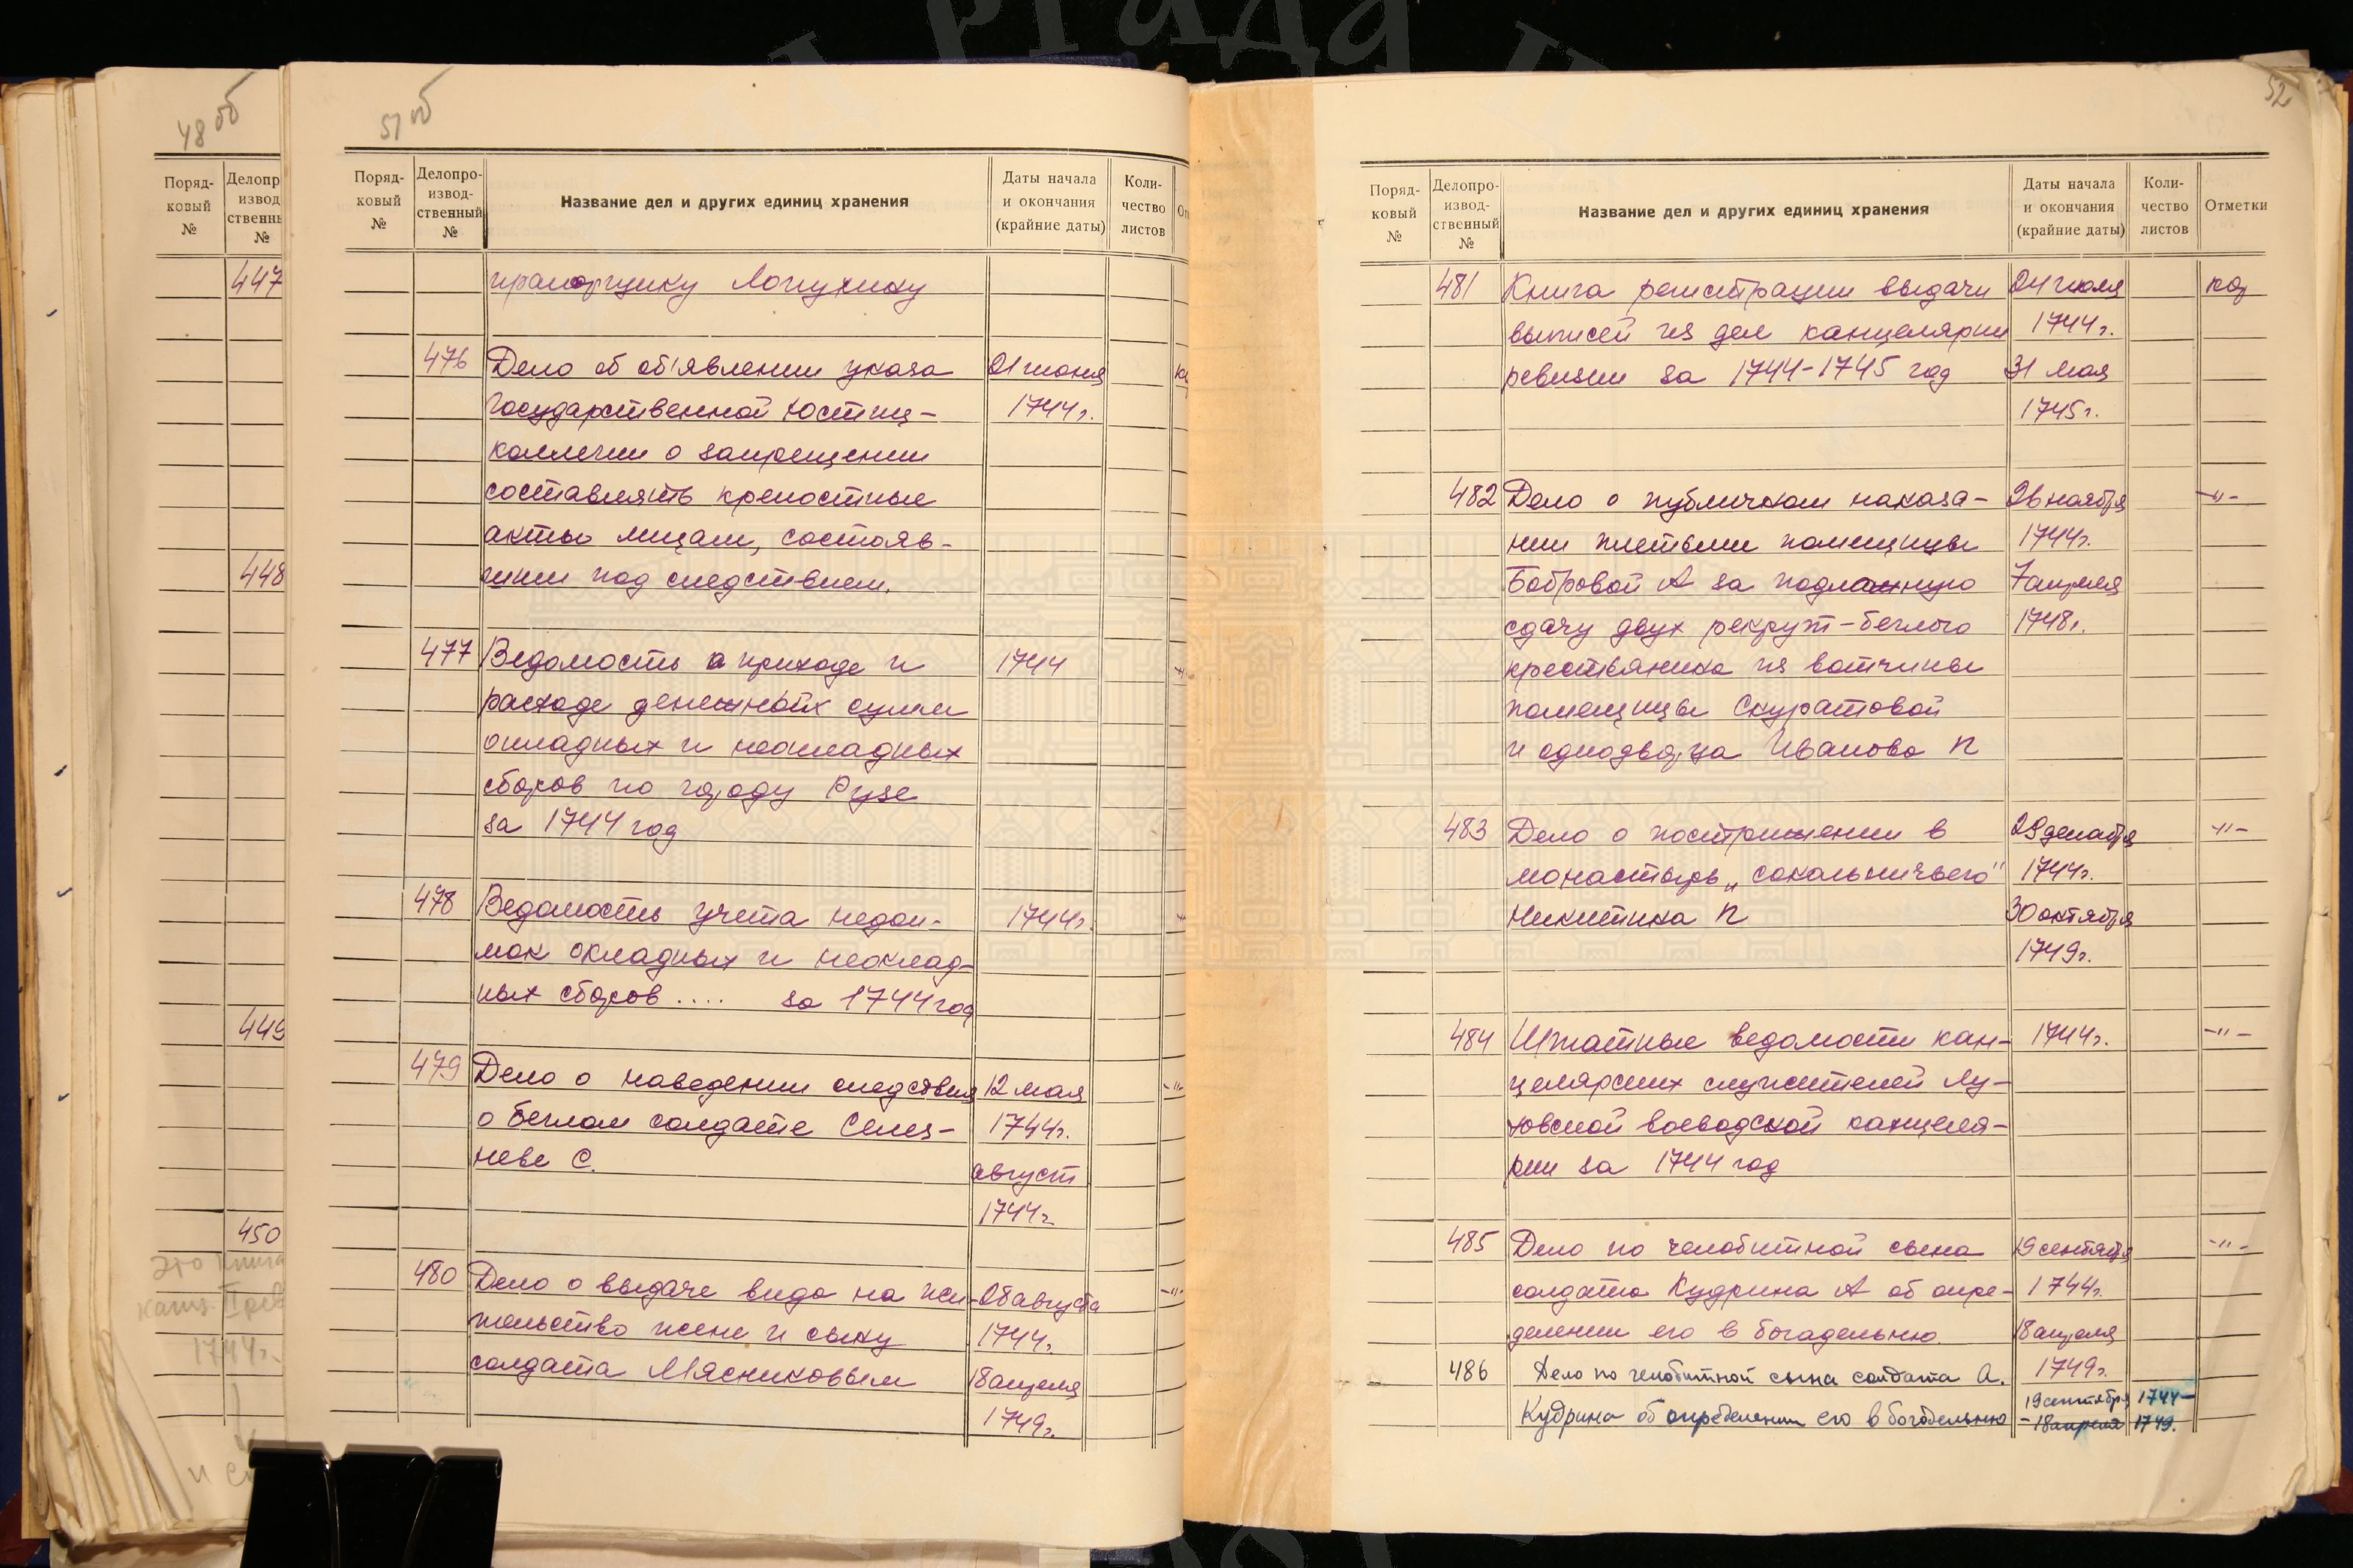 48 об
Поряд-
ковый
№
Делопр
извод
ственн
№
447
448
449
450
это книга
канц. I рев
1744 г.
51 об
Поряд-
ковый
№
Делопро-
извод-
ственный
№
Название дел и других единиц хранения
Даты начала
и окончания
(крайние даты)
Коли-
чество
листов
От
прапорщику Лопухину
476 Дело об об'явлении указа 01 июня
государственной Юстиц- 1744 г.
коллегии о запрещении
составлять крепостные
акты лицам, состояв-
шим под следствием.
477 Ведомость о приходе и 1744
расходе денежных сумм
окладных и неокладных
сборов по городу Рузе
за 1744 год
478 Ведомость учета недои- 1744 г.
мок окладных и неоклад-
ных сборов .... за 1744 год
479 Дело о наведении следствия 12 мая -"-
о беглом солдате Селез- 1744 г.
неве С. август
1744 г.
480 Дело о выдаче вида на жи- 08 августа -"-
тельство жене и сыну 1744 г.
солдата Мясниковым 18 апреля
1749 г.
52
Поряд-
ковый
№
Делопро-
извод-
ственный
№
Название дел и других единиц хранения
Даты начала
и окончания
(крайние даты)
Коли-
чество
листов
Отметки
481 Книга регистрации выдачи 04 июля
выписей из дел канцелярии 1744 г.
ревизии за 1744-1745 год 31 мая
1745 г.
482 Дело о публичном наказа- 26 ноября -"-
нии плетьми помещицы 1744 г.
Бобровой А за подложную 7 апреля
сдачу двух рекрут-беглого 1748 г.
крестьянина из вотчины
помещицы Скуратовой
и однодворца Иванова П
483 Дело о пострижении в 29 декабря -"-
монастырь „сокольничьего" 1744 г.
Никитина П 30 октября
1749 г.
484 Штатные ведомости кан- 1744 г. -"-
целярских служителей Лу-
ховской воеводской канцеля-
рии за 1744 год
485 Дело по челобитной сына 19 сентября -"-
солдата Кудрина А об опре- 1744 г.
делении его в богадельню 18 апреля
1749 г.
486 Дело по челобитной сына солдата А.
Кудрина об определении его в богадельню 19 сентября 1744-
- 18 апреля 1749.